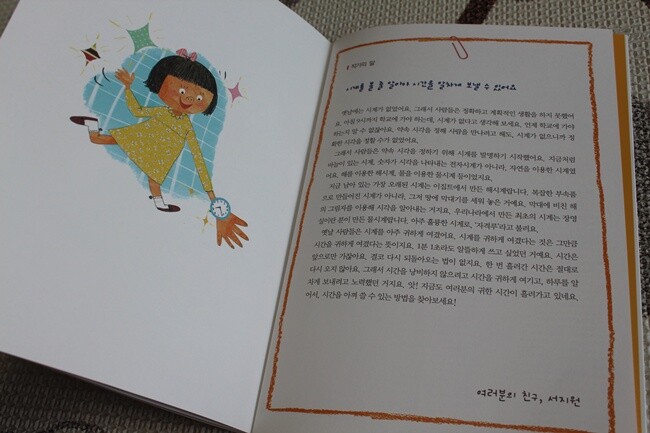 작가의 말
시계를 볼 줄 알아야 시간을 알차게 보낼 수 있어요
옛날에는 시계가 없었어요. 그래서 사람들은 정확하고 계획적인 생활을 하지 못했어
요. 아침 9시까지 학교에 가야 하는데, 시계가 없다고 생각해 보세요. 언제 학교에 가야
하는지 알 수 없잖아요. 약속 시각을 정해 사람을 만나려고 해도, 시계가 없으니까 정
확한 시각을 정할 수가 없었어요.
그래서 사람들은 약속 시각을 정하기 위해 시계를 발명하기 시작했어요. 지금처럼
바늘이 있는 시계, 숫자가 시각을 나타내는 전자시계가 아니라, 자연을 이용한 시계였
어요. 해를 이용한 해시계, 물을 이용한 물시계 등이었지요.
지금 남아 있는 가장 오래된 시계는 이집트에서 만든 해시계랍니다. 복잡한 부속품
으로 만들어진 시계가 아니라, 그저 땅에 막대기를 세워 놓은 거예요. 막대에 비친 해
의 그림자를 이용해 시각을 알아내는 거지요. 우리나라에서 만든 최초의 시계는 장영
실이란 분이 만든 물시계랍니다. 아주 훌륭한 시계로, '자격루'라고 불러요.
옛날 사람들은 시계를 아주 귀하게 여겼어요. 시계를 귀하게 여겼다는 것은 그만큼
시간을 귀하게 여겼다는 뜻이지요. 1분 1초라도 알뜰하게 쓰고 싶었던 거예요. 시간은
앞으로만 가잖아요. 결코 다시 되돌아오는 법이 없지요. 한 번 흘러간 시간은 절대로
다시 오지 않아요. 그래서 시간을 낭비하지 않으려고 시간을 귀하게 여기고, 하루를 알
차게 보내려고 노력했던 거지요. 앗! 지금도 여러분의 귀한 시간이 흘러가고 있네요.
어서, 시간을 아껴 쓸 수 있는 방법을 찾아보세요!
여러분의 친구, 서지원